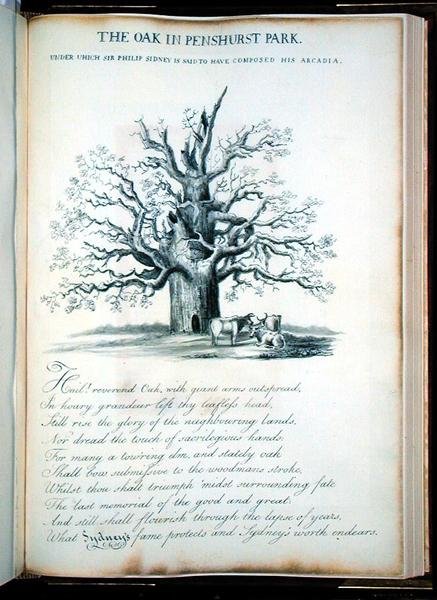 THE OAK IN PENSHURST PARK.
UNDER WHICH SIR PHILIP SIDNEY IS SAID TO HAVE COMPOSED HIS ARCADIA.
Hail! reverend Oak, with giant arms outspread,
In hoary grandeur left thy leafless head,
Still rise the glory of the neighbouring lands,
Nor dread the touch of sacrilegious hands;
For many a tow'ring elm, and stately oak
Shall bow submissive to the woodmans stroke,
Whilst thou shalt triumph 'midst surrounding fate
The last memorial of the good and great:
And still shall flourish through the lapse of years,
What Sydney's fame protects and Sydney's worth endears.